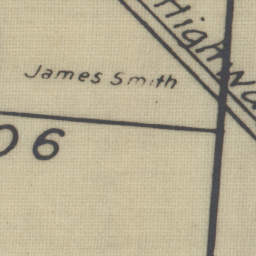 Highwa
James Smith
06